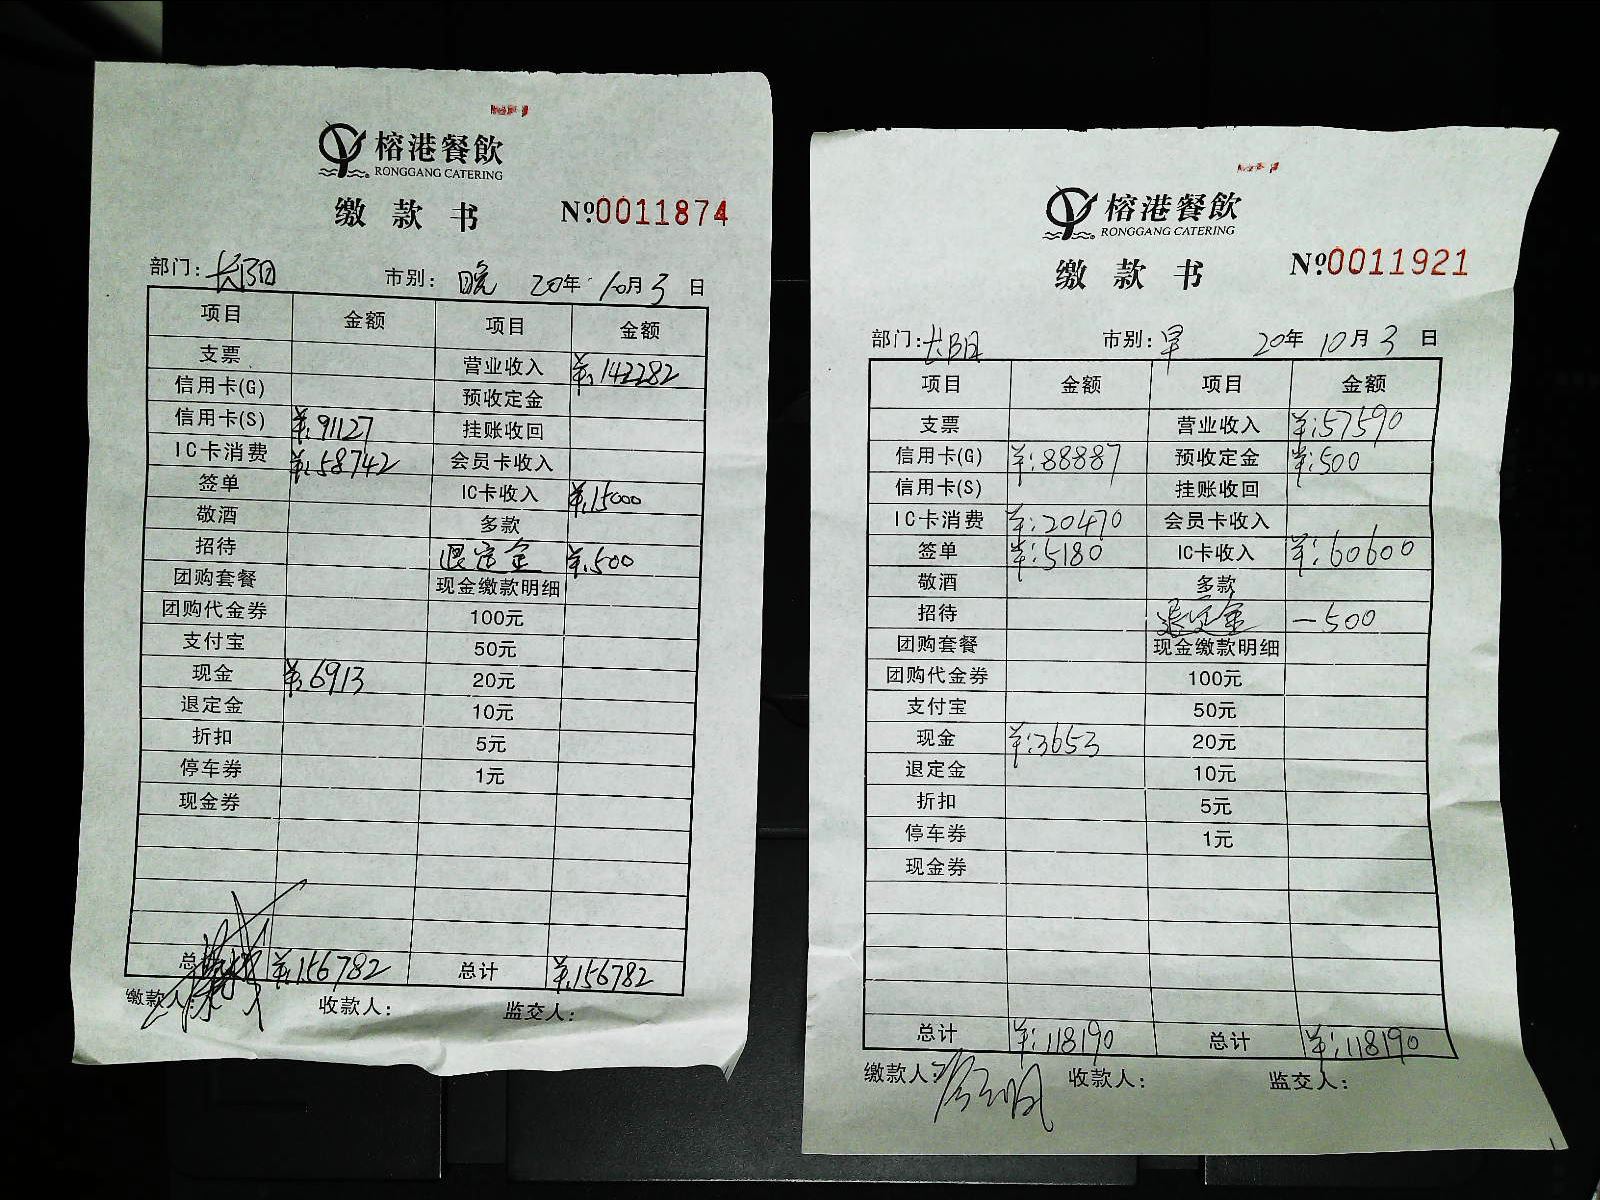 榕港餐飲
RONGGANG CATERING
缴款书 №0011874
部门: 长阳 市别: 晚 20年10月3日
项目 金额 项目 金额
支票 营业收入 ¥:142282
信用卡(G) 预收定金
信用卡(S) ¥:91127 挂账收回
IC卡消费 ¥:58742 会员卡收入
签单 IC卡收入 ¥:15000
敬酒 多款
招待 退定金 ¥:500
团购套餐 现金缴款明细
团购代金券 100元
支付宝 50元
现金 ¥:6913 20元
退定金 10元
折扣 5元
停车券 1元
现金券
总 ¥:156782 总计 ¥:156782
缴款人: 收款人: 监交人:
榕港餐飲
RONGGANG CATERING
缴款书 №0011921
部门: 长阳 市别: 早 20年10月3日
项目 金额 项目 金额
支票 营业收入 ¥:57590
信用卡(G) ¥:88887 预收定金 ¥:500
信用卡(S) 挂账收回
IC卡消费 ¥:20470 会员卡收入
签单 ¥:5180 IC卡收入 ¥:60600
敬酒 多款
招待 退定金 —500
团购套餐 现金缴款明细
团购代金券 100元
支付宝 50元
现金 ¥:3653 20元
退定金 10元
折扣 5元
停车券 1元
现金券
总计 ¥:118190 总计 ¥:118190
缴款人: 收款人: 监交人: